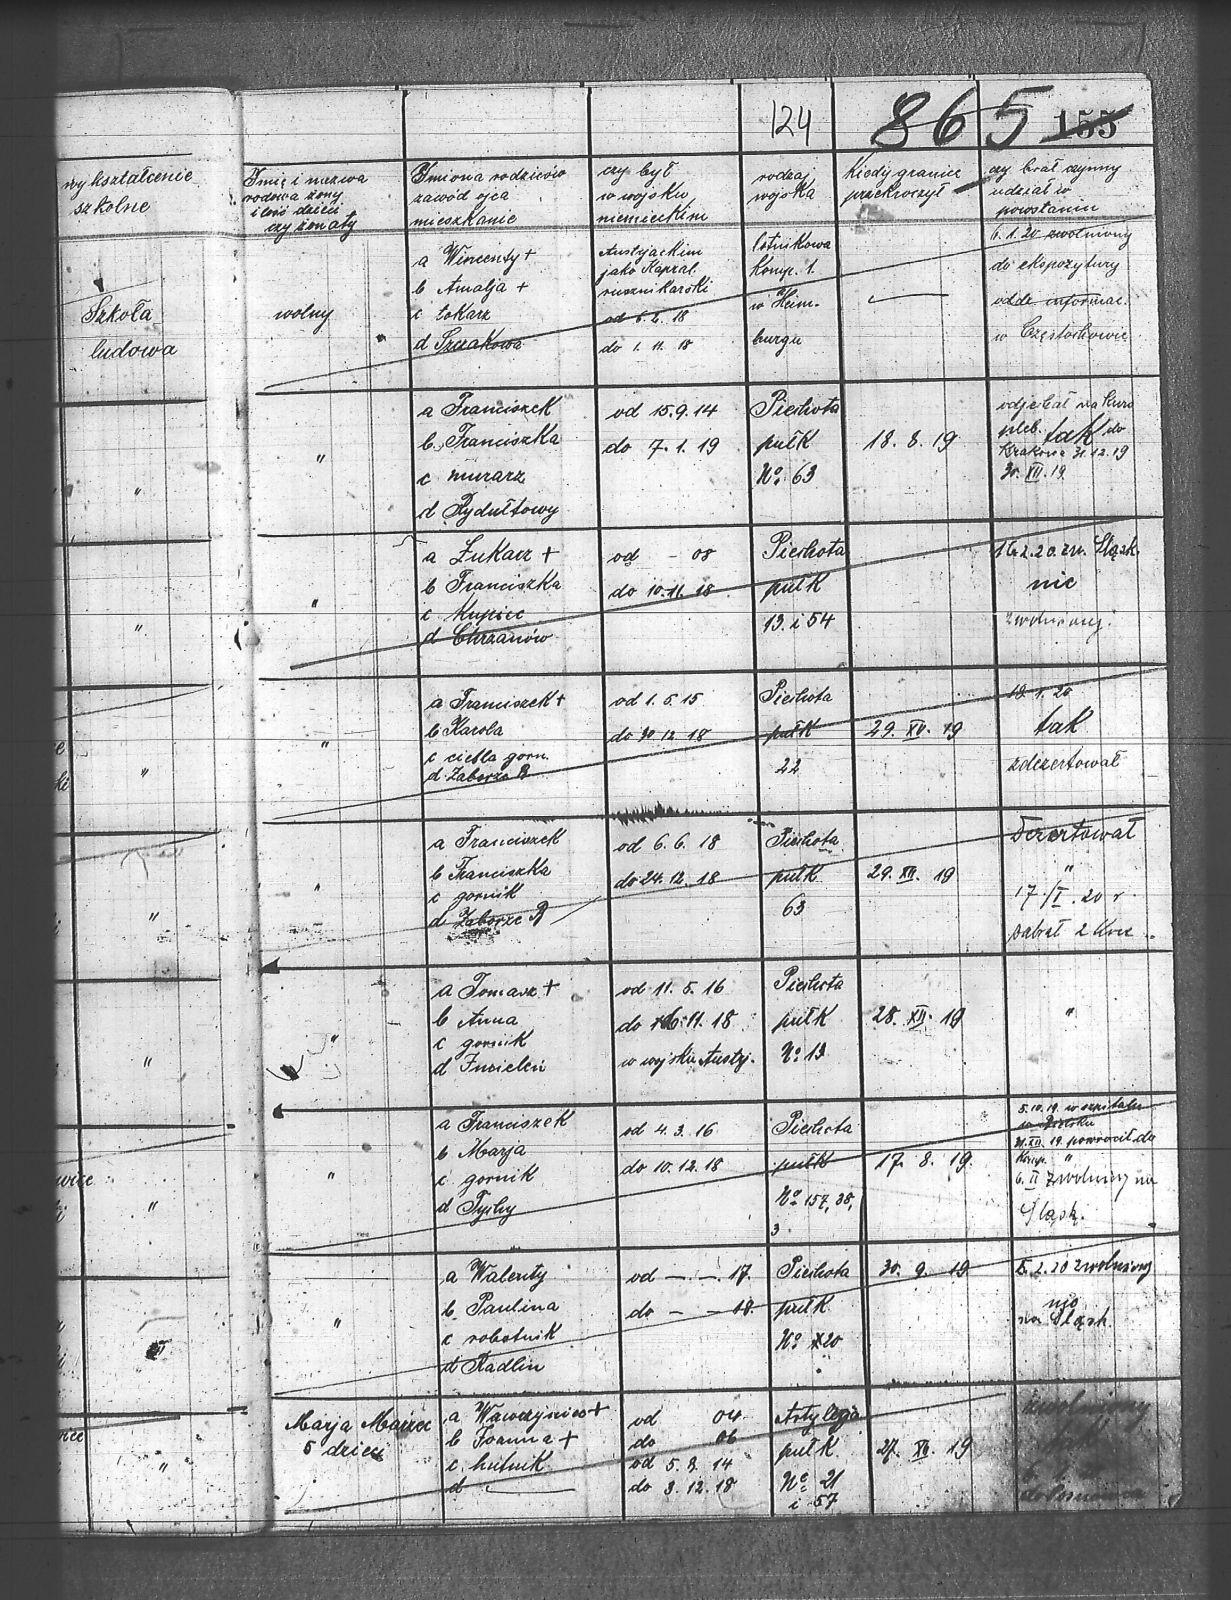 124 865 155
wykształcenie
szkolne
Imię i nazwa
rodowa żony
i ilość dzieci
czy żonaty
Imiona rodziców
zawód ojca
mieszkanie
czy był
w wojsku
niemieckim
rodzaj
wojska
Kiedy granicę
przekroczył
czy brał czynny
udział w
powstaniu
Szkoła
ludowa
wolny
a Wincenty +
b Amalja +
c tokarz
d Szczakowa
Austrjackim
jako Kapral
rusznikarski
od 6.2.18
do 1.11.18
lotnikowa
Komp. 1.
w Heim-
burgu
—
6.1.20 zwolniony
do ekspozytury
oddz. informac.
w Częstochowie
"
"
a Franciszek
b Franciszka
c murarz
d Rydułtowy
od 15.9.14
do 7.1.19
Piechota
pułK
No. 63
18.8.19
odjechał na Kurs
pleb. tak do
Krakowa 31.12.19
30.XII.19
"
"
a Łukasz +
b Franciszka
c Kupiec
d Chrzanów
od - 08
do 10.11.18
Piechota
pułK
13. i 54
16.2.20 zw. Śląsk.
nie
zwolniony.
"
"
a Franciszek +
b Karola
c cieśla gorn.
d Zaborze B
od 1.5.15
do 30.12.18
Piechota
pułK
22
29.XII.19
19.1.20
tak
zdezertował
"
"
a Franciszek
b Franciszka
c gornik
d Zaborze B
od 6.6.18
do 24.12.18
Piechota
pułK
63
29.XII.19
Dezertował
"
17./I.20 r.
zabrał 2 Koce
"
"
a Tomasz +
b Anna
c gornik
d Imielin
od 11.5.16
do 16.11.18
w wojsku Austrj.
Piechota
pułK
No 13
28.XII.19
"
"
"
a Franciszek
b Marja
c gornik
d Tychy
od 4.3.16
do 10.12.18
Piechota
pułK
No 157, 38,
3.
17.8.19.
5.10.19. w szpitalu
31.XII.19. powrocił do
Komp. "
6.II zwolniony na
Śląsk.
"
"
a Walenty
b Paulina
c robotnik
d Radlin
od — — 17.
do — — 18.
Piechota
pułK
No 20
30.9.19
5.2.20 zwolniony
na Śląsk.
"
Marja Mairer
5 dzieci
a Wawrzyniec +
b Joanna +
c hutnik
d —
od 04.
do 06
od 5.8.14
do 3.12.18
Artyleria
pułK
No 21
i 57
27.XII.19
zwolniony